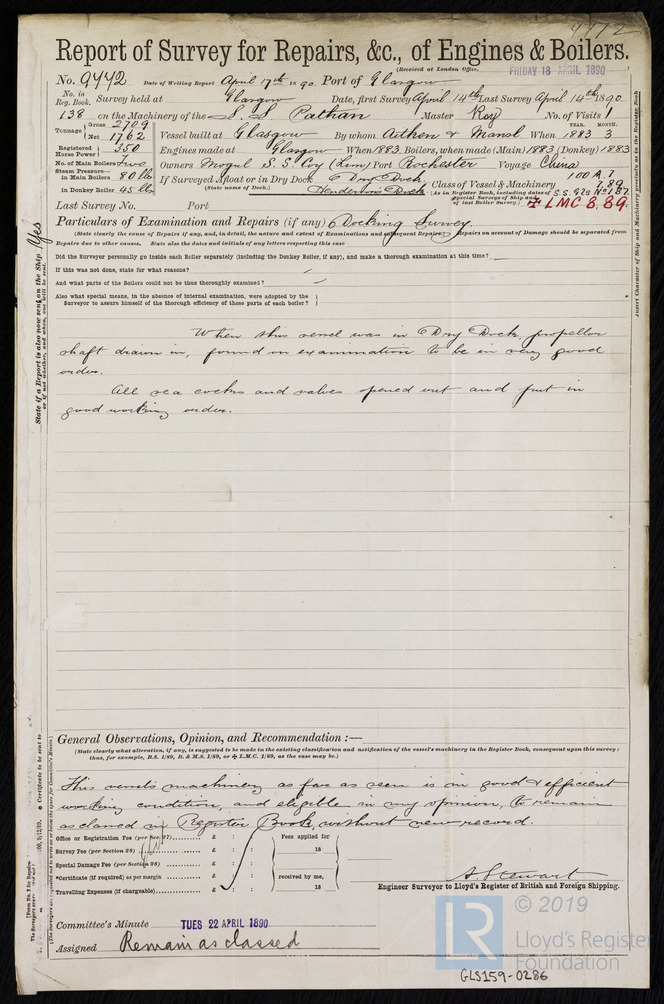 9442
Report of Survey for Repairs, &c., of Engines & Boilers.
(Received at London Office, FRIDAY 18 APRIL 1890
No. 9442 Date of Writing Report April 17th 1890 Port of Glasgow
No. in Reg. Book. Survey held at Glasgow Date, first Survey April 14th Last Survey April 14th 1890
138 on the Machinery of the S. S. Pathan Master Roy No. of Visits 1
Tonnage Gross 2709 Net 1762 Vessel built at Glasgow By whom Aitken & Mansel When YEAR. 1883 MONTH. 3
Registered Horse Power 350 Engines made at Glasgow When 1883 Boilers, when made (Main) 1883 (Donkey) 1883
No. of Main Boilers Two Owners Mogul S. S. Coy (Lim) Port Rochester Voyage China
Steam Pressure— in Main Boilers 80 lb If Surveyed Afloat or in Dry Dock Dry Dock
(State name of Dock.) Henderson Dock
in Donkey Boiler 45 lb
Class of Vessel & Machinery 100 A. 1 7,89
(As in Register Book, including dates of Special Surveys of Ship and of last Boiler Survey.) S.S. No 1,87
✠ LMC 8,89
Last Survey No. Port
Particulars of Examination and Repairs (if any) Docking Survey.
(State clearly the cause of Repairs if any, and, in detail, the nature and extent of Examinations and subsequent Repairs. Repairs on account of Damage should be separated from
Repairs due to other causes. State also the dates and initials of any letters respecting this case
Did the Surveyor personally go inside each Boiler separately (including the Donkey Boiler, if any), and make a thorough examination at this time?
If this was not done, state for what reasons?
And what parts of the Boilers could not be thus thoroughly examined?
Also what special means, in the absence of internal examination, were adopted by the
Surveyor to assure himself of the thorough efficiency of those parts of each boiler?
When this vessel was in Dry Dock, propellor
shaft drawn in, found on examination to be in very good
order.
All sea cocks and valves opened out and put in
good working order.
General Observations, Opinion, and Recommendation :—
(State clearly what alteration, if any, is suggested to be made in the existing classification and notification of the vessel's machinery in the Register Book, consequent upon this survey;
thus, for example, B.S. 1/89, B. & M.S. 1/89, or ✠ L.M.C. 1/89, as the case may be.)
This vessels machinery as far as seen is in good & efficient
working condition, and eligible in my opinion, to remain
as classed in Register Book, without new record.
Office or Registration Fee (per Sec. 27) £ : : Fees applied for
Survey Fee (per Section 28) £ : : 18
Special Damage Fee (per Section 28) £ : :
*Certificate (if required) as per margin £ : : received by me,
Travelling Expenses (if chargeable) £ : : 18
A. Stewart
Engineer Surveyor to Lloyd's Register of British and Foreign Shipping.
Committee's Minute TUES 22 APRIL 1890
Assigned Remain as classed
State if a Report is also now sent on the Ship Yes
or if not whether, and when, one will be sent.
Insert Character of Ship and Machinery precisely as in the Register Book
* Certificate to be sent to
(The Surveyors are requested not to write on or below the space for Committee's Minute.)
LR
© 2019
Lloyd's Register
Foundation
GLS159-0286